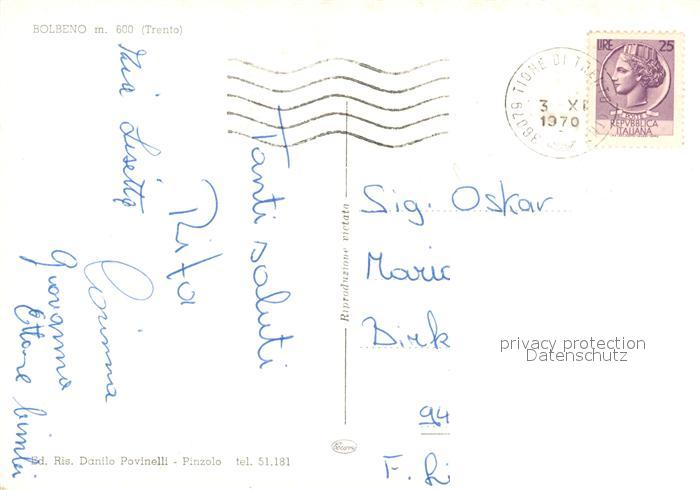 BOLBENO m. 600 (Trento)
LIRE 25
REPVBBLICA
ITALIANA
38079 TIONE DI TRENTO
3 XI
1970
Tanti saluti
Rita
Corinna
Zia Lisetta
Giovanna
Ettore
Riproduzione vietata
Sig. Oskar
Maric
Dirk
94
F. Li
privacy protection
Datenschutz
Ed. Ris. Danilo Povinelli - Pinzolo tel. 51.181